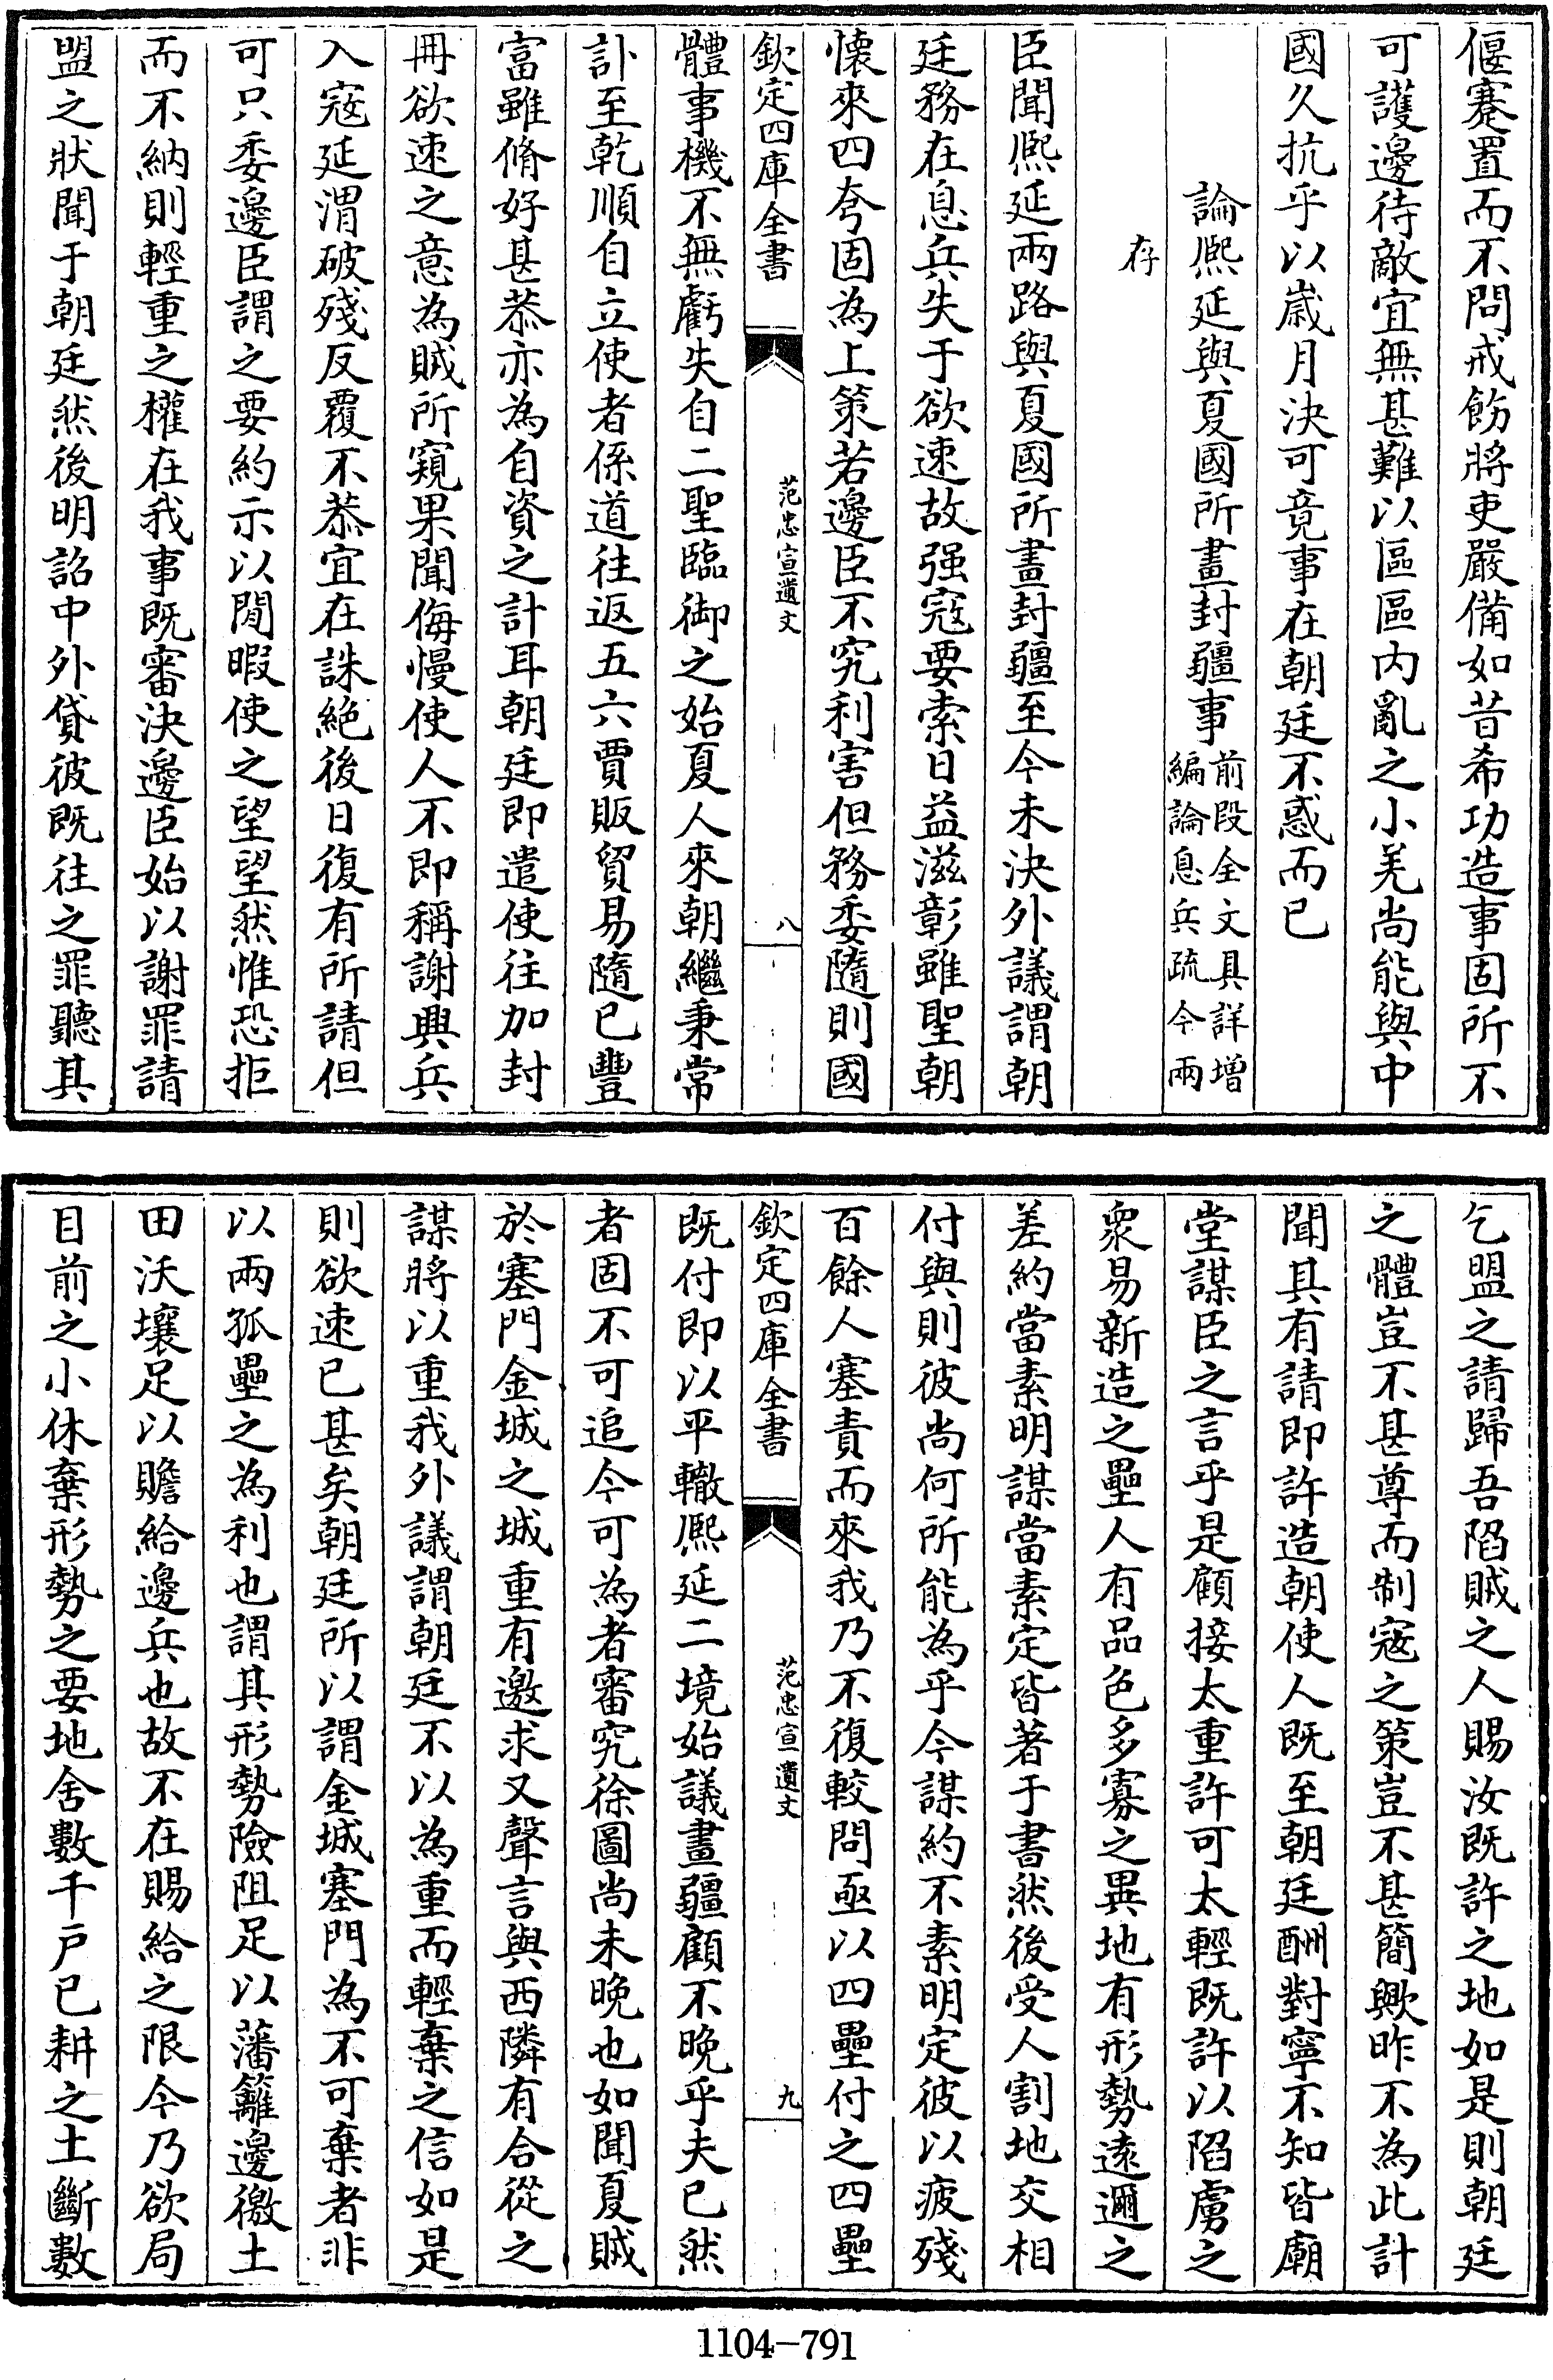 偃蹇置而不問戒飭將吏嚴備如昔希功造事固所不
可護邊待敵宜無甚難以區區內亂之小羌尚能與中
國久抗乎以歲月決可竟事在朝廷不惑而已
論熈延與夏國所畫封疆事前段全文具詳增
編論息兵疏今兩
存
臣聞熈延兩路與夏國所畫封疆至今未決外議謂朝
廷務在息兵失于欲速故强寇要索日益滋彰雖聖朝
懷來四夸固為上策若邊臣不究利害但務委隨則國
欽定四庫全書
范忠宣遺文
八
體事機不無虧失自二聖臨御之始夏人來朝繼秉常
訃至乾順自立使者係道往返五六賈販貿易隨已豐
富雖脩好甚恭亦為自資之計耳朝廷即遣使往加封
冊欲速之意為賊所窺果聞侮慢使人不即稱謝興兵
入寇延渭破殘反覆不恭宜在誅絕後日復有所請但
可只委邊臣謂之要約示以閒暇使之望望然惟恐拒
而不納則輕重之權在我事既審決邊臣始以謝罪請
盟之狀聞于朝廷然後明詔中外貸彼既往之罪聽其
乞盟之請歸吾陷賊之人賜汝既許之地如是則朝廷
之體豈不甚尊而制寇之策豈不甚簡歟昨不為此計
聞其有請即許造朝使人既至朝廷酬對寧不知皆廟
堂謀臣之言乎是顧接太重許可太輕既許以陷虜之
衆易新造之壘人有品色多寡之異地有形勢遠邇之
差約當素明謀當素定皆著于書然後受人割地交相
付與則彼尚何所能為乎今謀約不素明定彼以疲殘
百餘人塞責而來我乃不復較問亟以四壘付之四壘
欽定四庫全書
范忠宣遺文
九
既付即以平轍熈延二境始議畫疆顧不晚乎夫已然
者固不可追今可為者審究徐圖尚未晚也如聞夏賊
於塞門金城之城重有邀求又聲言與西隣有合從之
謀將以重我外議謂朝廷不以為重而輕棄之信如是
則欲速已甚矣朝廷所以謂金城塞門為不可棄者非
以兩孤壘之為利也謂其形勢險阻足以藩籬邊徼土
田沃壤足以贍給邊兵也故不在賜給之限今乃欲局
目前之小休棄形勢之要地舍數千戶已耕之土斷數
1104-791